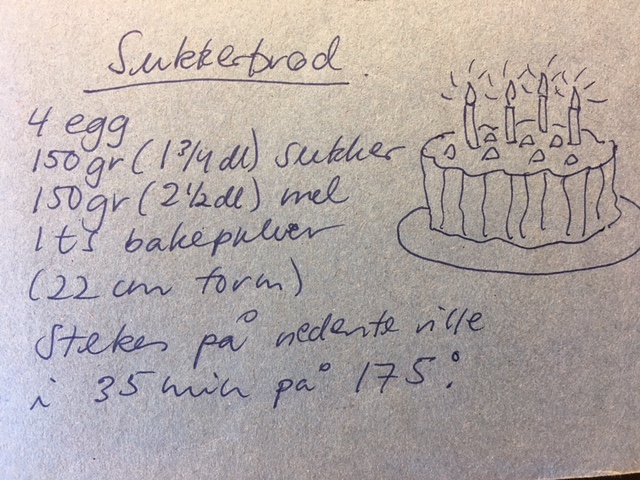 Sukkerbrød.
4 egg
150gr (1 3/4 dl) sukker
150gr (2 1/2 dl) mel
1 ts bakepulver
(22 cm form)
Stekes på nederste rille
i 35 min på 175°.